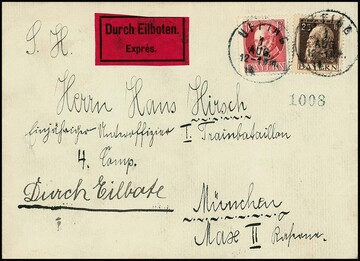 Durch Eilboten.
Exprès.
UTTING
AUG.
12-1 Nm.
BAYERN
S. H.
1008
Herrn Hans Hirsch
Einjähriger Unteroffizier I Trainbataillon
4. Comp.
Durch Eilbote
München
Max II Kaserne.